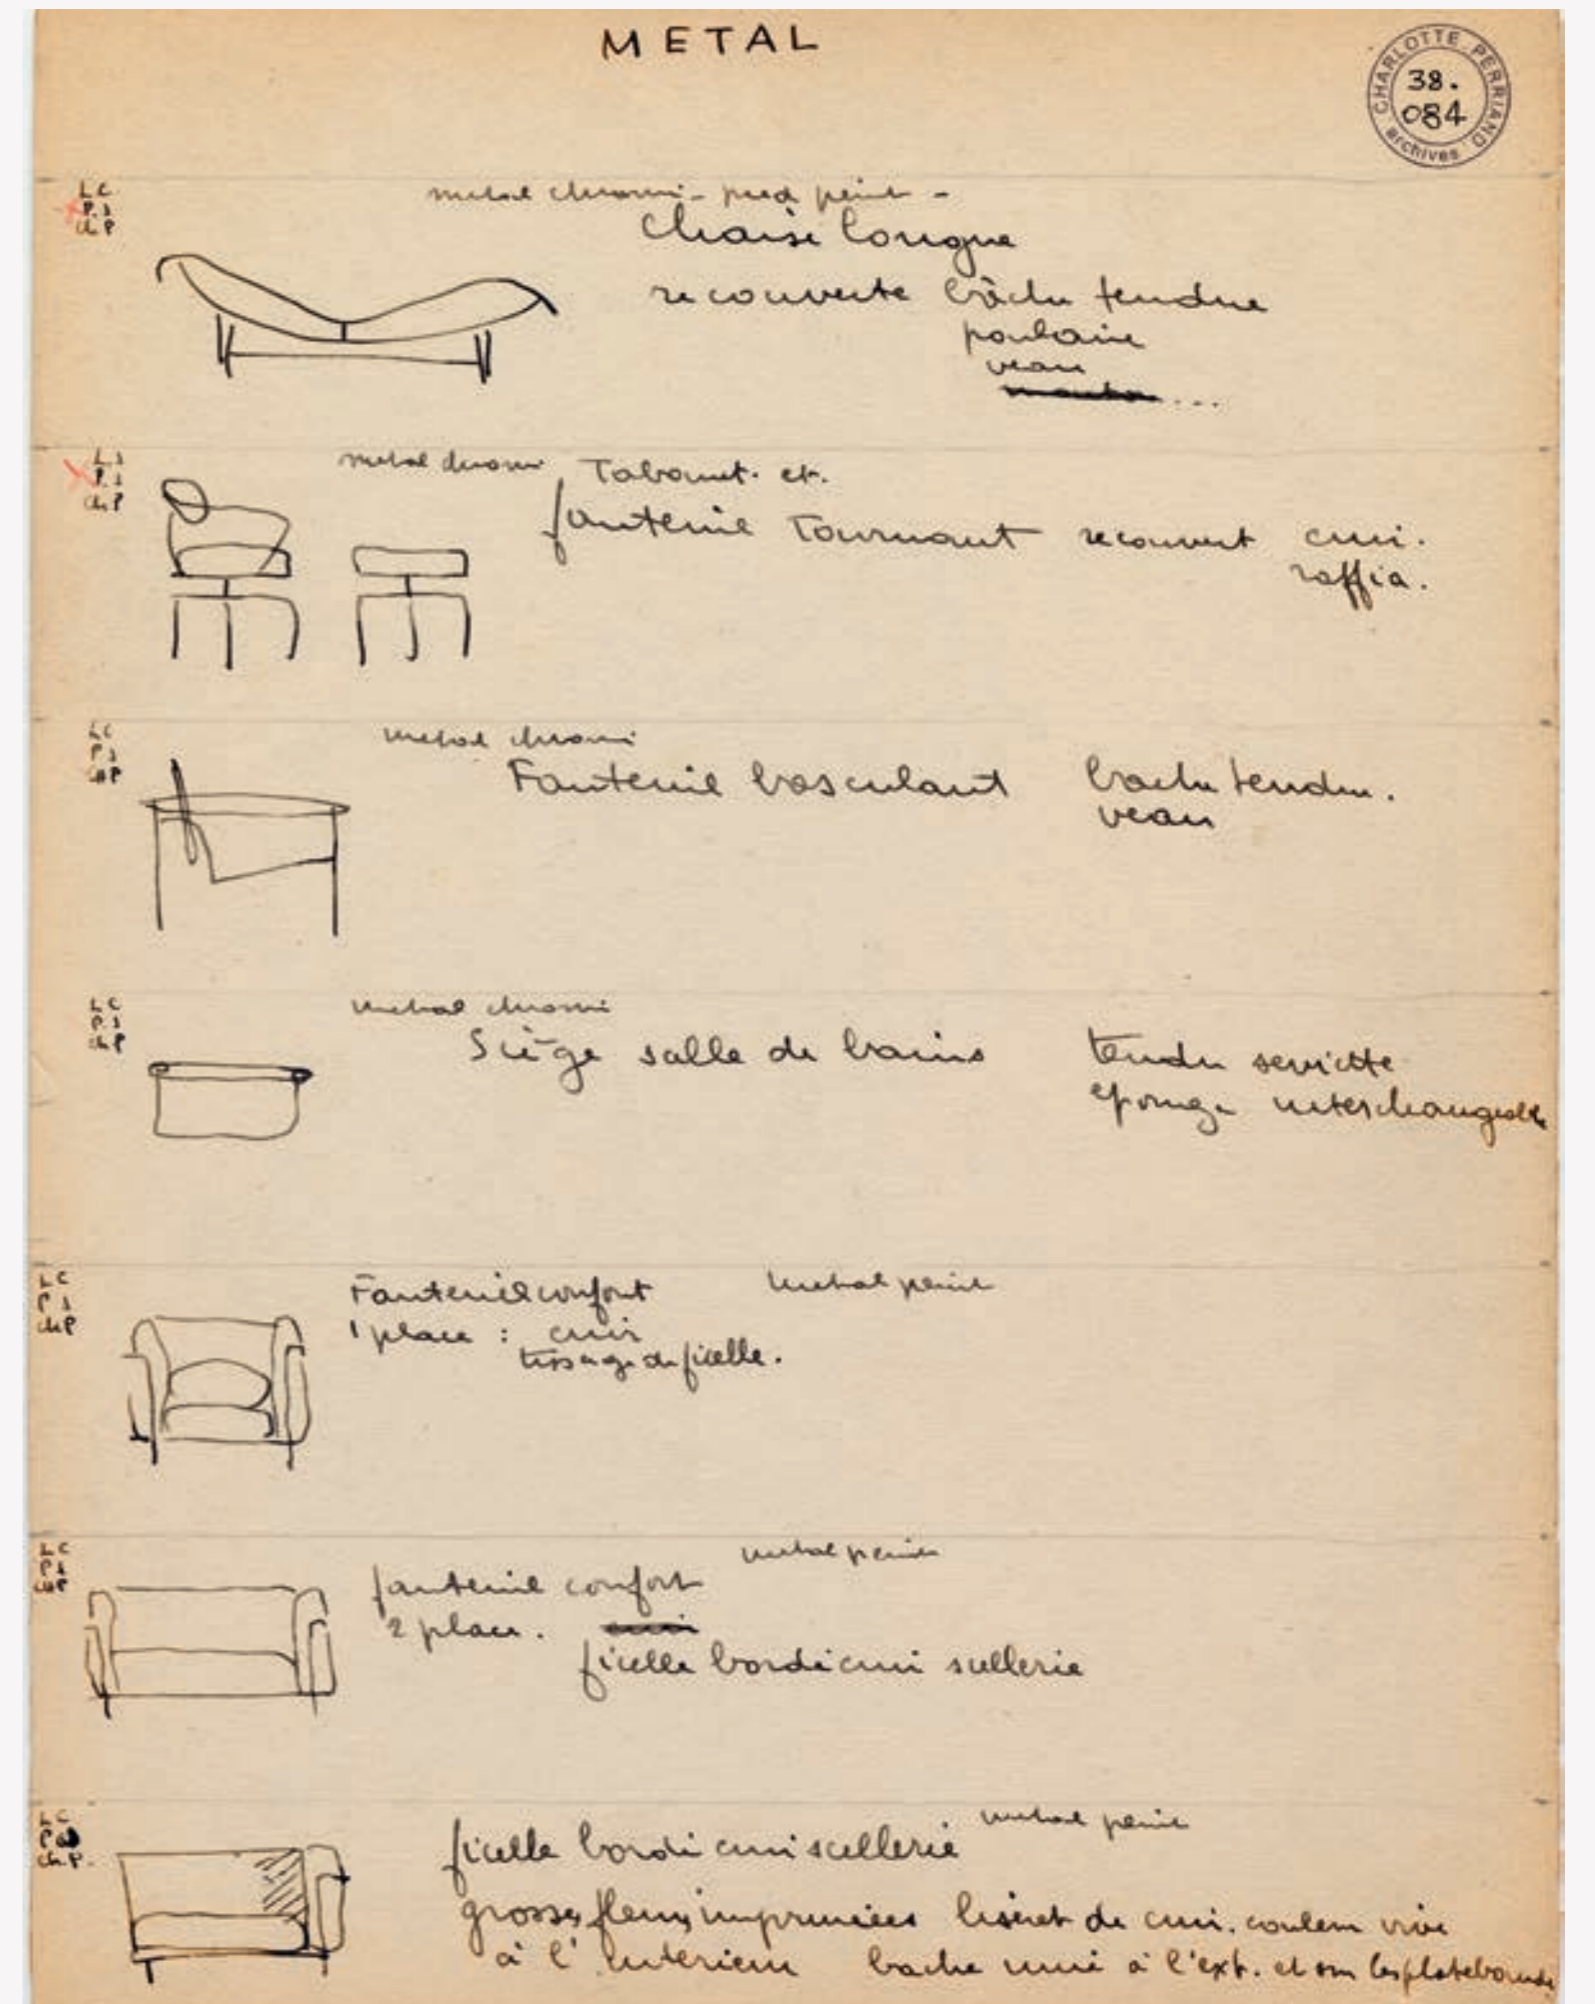 METAL
CHARLOTTE PERRIAND archives
38.
084
LC
P.J
ch P
metal chromé - pied peint -
Chaise longue
recouverte bâche tendue
poulain
veau
mouton ...
P.J
ch P
metal chromé Tabouret. et.
fauteuil tournant recouvert cuir.
raffia.
LC
PJ
ch P
metal chromé
Fauteuil basculant bache tendue.
veau
LC
P.J
ch P
metal chromé
Siège salle de bains tendu serviette
eponge interchangeable
LC
P J
ch P
Fauteuil confort metal peint
1 place : cuir
tissage de ficelle.
LC
PJ
ch P
metal peint
fauteuil confort
2 place. cuir
ficelle bordé cuir sellerie
LC
ch.P.
metal peint
ficelle bordé cuir scellerie
grosses fleurs imprimées liseret de cuir. couleur vive
à l'interieur bache unie à l'ext. et sur les platebande